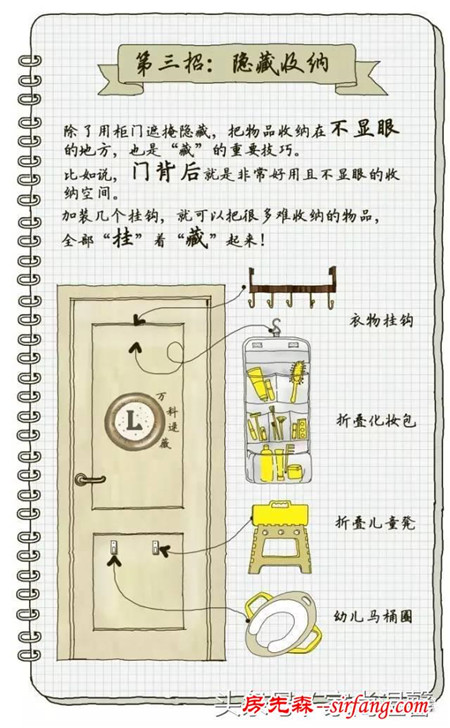 第三招：隐藏收纳
除了用柜门遮掩隐藏，把物品收纳在不显眼
的地方，也是“藏”的重要技巧。
比如说，门背后就是非常好用且不显眼的收
纳空间。
加装几个挂钩，就可以把很多难收纳的物品，
全部“挂”着“藏”起来！
衣物挂钩
L
万科迷藏
折叠化妆包
折叠儿童凳
幼儿马桶圈
房先森-sirfang.com